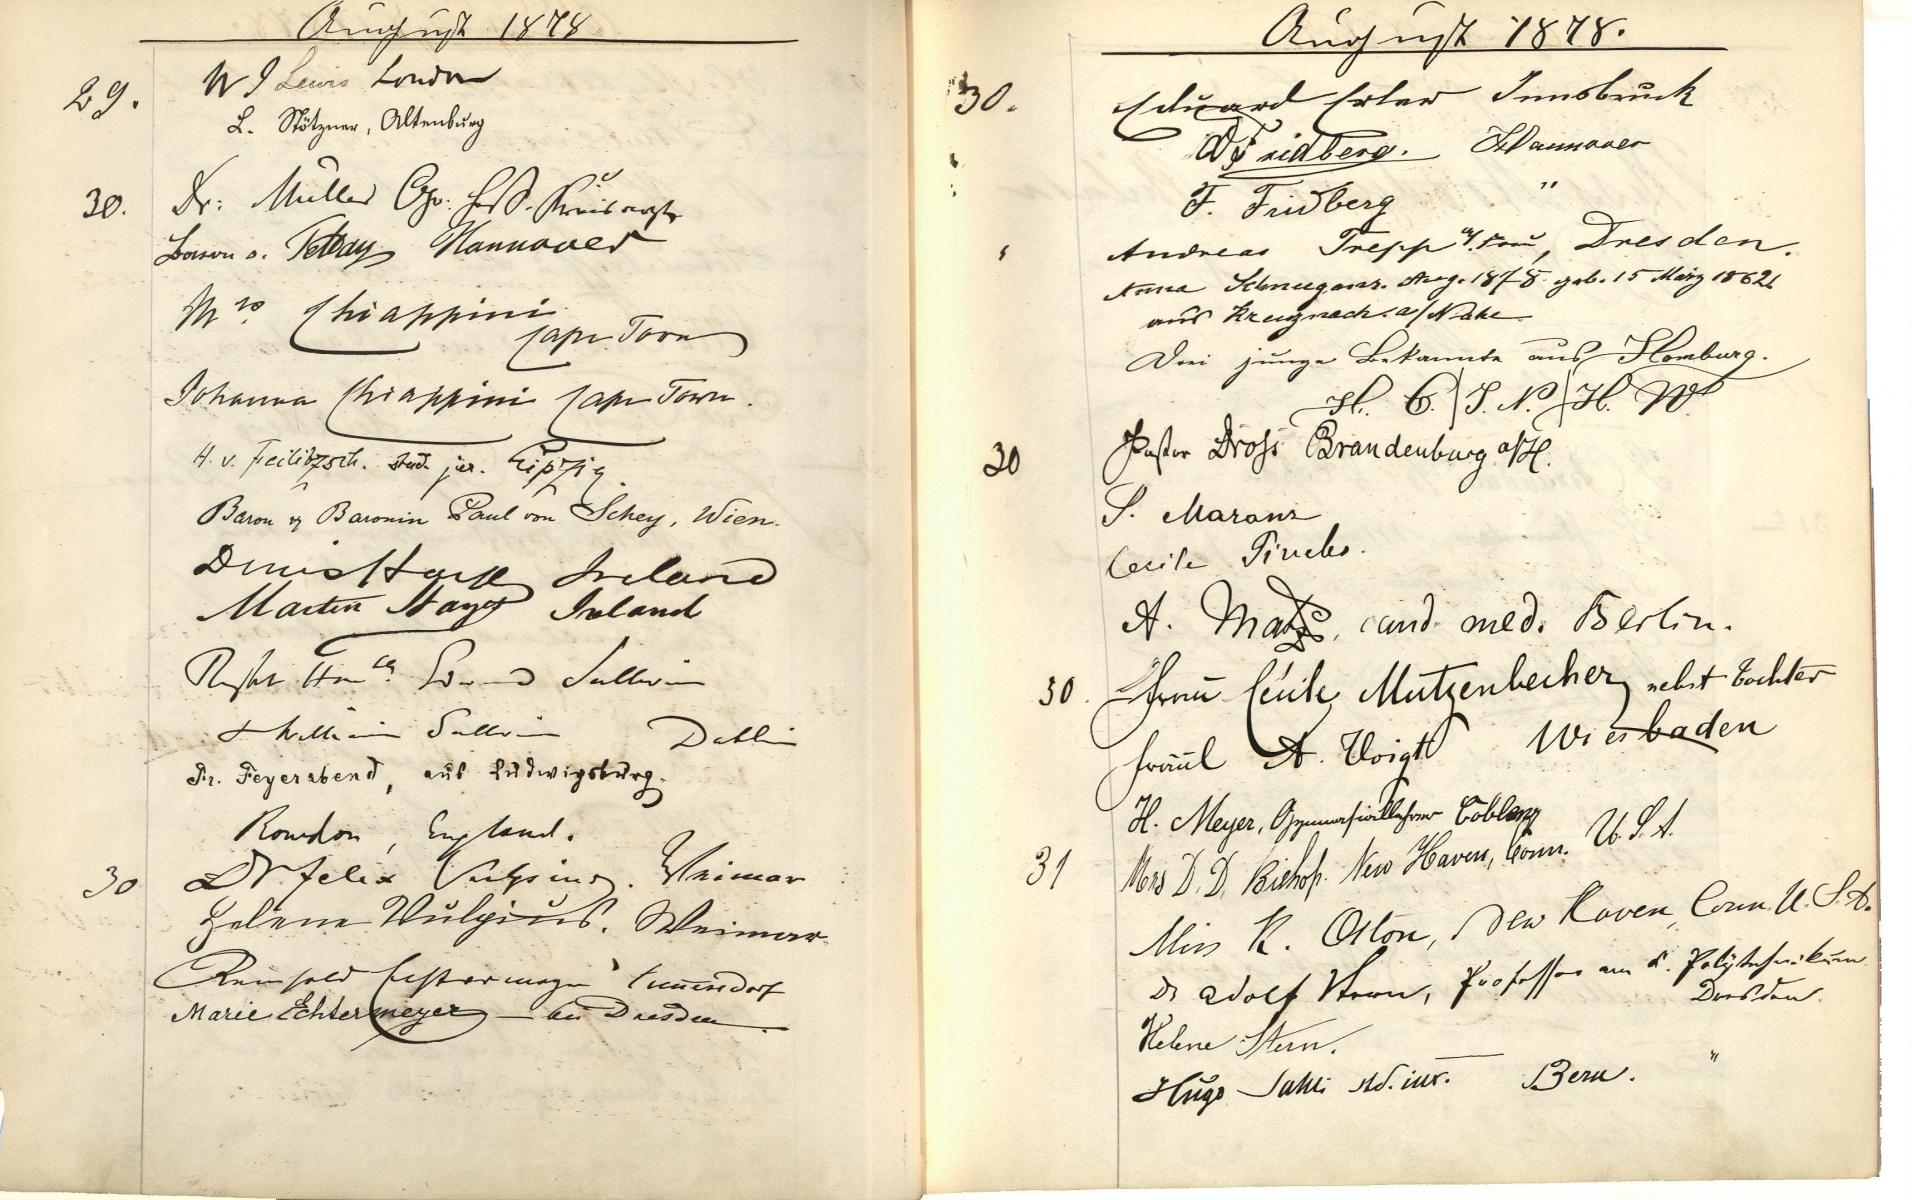 August 1878
29. W J Lewis London
L. Stötzner, Altenburg
30. Dr: Müller
Baron v. Hannover
Mrs. Chiappini
Cape Town
Johanna Chiappini Cape Town.
H. v. Feilitzsch. stud. jur. Leipzig.
Baron & Baronin Paul von Schey, Wien.
Denis Hayes Ireland
Martin Hayes Ireland
Right Honble. Edward Sullivan
& William Sullivan Dublin
Fr. Feyerabend, aus Ludwigsburg.
Rowdon, England.
30 Dr Felix Vulpius. Weimar
Helene Vulpius. Weimar
Reinhold Echtermeyer
Marie Echtermeyer bei Dresden.
August 1878.
30. Eduard Erler Innsbruck
Fridberg. Hannover
F. Fridberg "
Andreas Trepp u. Frau, Dresden.
Anna Schneegans. Aug. 1878. geb. 15 März 1862
aus Kreuznach. a/Nahe
Drei junge Bekannte aus Homburg.
H. C. | J. N. | H. W.
30 Pastor Dross Brandenburg a/H.
S. Maranz
Cecile
A. cand. med. Berlin.
30. Frau Cécile Mutzenbecher nebst Tochter
Wiesbaden
Fräul A. Voigt
H. Meyer, Gymnasiallehrer Coblenz
31 Mrs D. D. Bishop. New Haven, Conn. U. S. A.
Miss K. Olton, New Haven, Conn. U. S. A.
Dr Adolf Stern, Professor am k. Polytechnikum
Dresden.
Helene Stern. "
Hugo Sahli Bern.